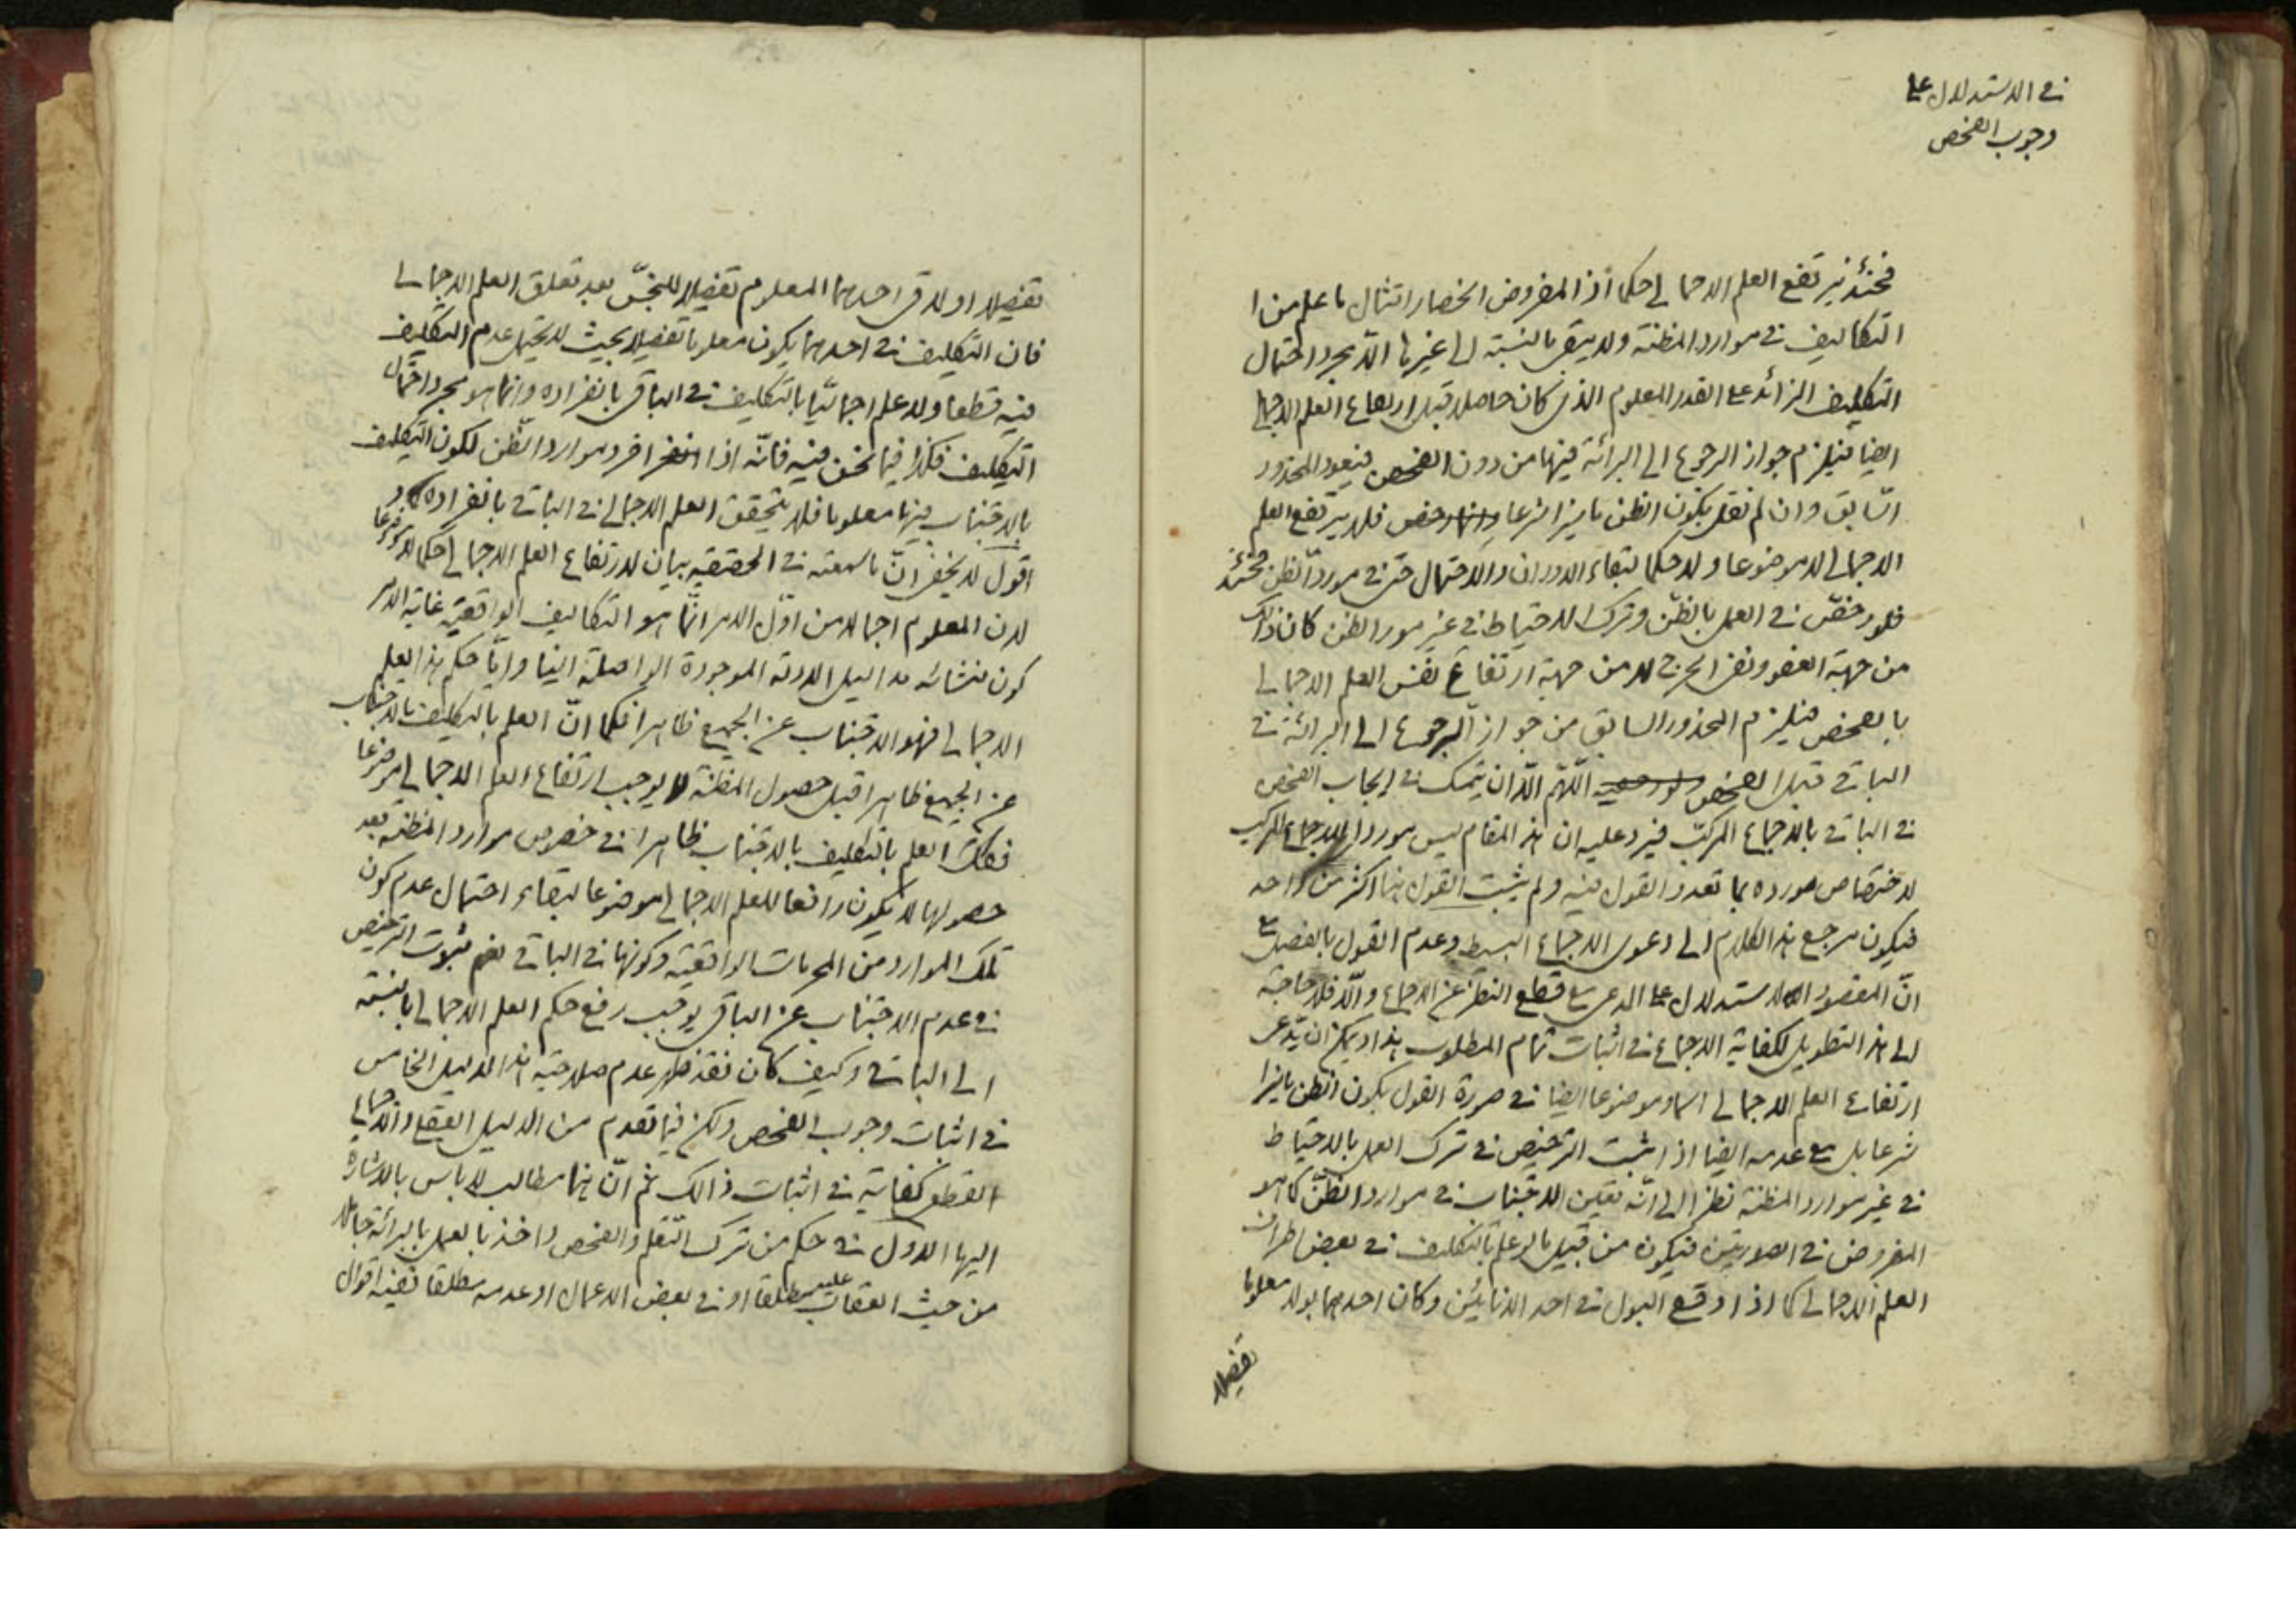 في الاستدلال على
وجوب الفحص
فحينئذ يرتفع العلم الاجمالي حكما اذ المفروض انحصار امتثال ما علم من
التكاليف في موارد المظنة ولا يبقى بالنسبة الى غيرها الّا مجرد احتمال
التكليف الزائد على القدر المعلوم الذي كان حاصلا قبل ارتفاع العلم الاجمالي
ايضا فيلزم جواز الرجوع الى البرائة فيها من دون الفحص فيعود المحذور
السّابق وان لم نقل بكون الظن مايزا شرعا فلا يرتفع العلم
الاجمالي لا موضوعا ولا حكما لبقاء الدوران والاحتمال حتى في مورد الظن فحينئذ
فلو رخص في العمل بالظنّ وترك الاحتياط في غير مورد الظن كان ذلك
من جهة العسر ونفي الحرج لا من جهة ارتفاع نفس العلم الاجمالي
بالفحص فيلزم المحذور السابق من جواز الرجوع الى البرائة في
الباقي قبل الفحص اللّهم الّا ان يتمسك في ايجاب الفحص
في الباقي بالاجماع المركب فيرد عليه ان هذا المقام ليس موردا للاجماع المركب
لاختصاص مورده بما تعدد القول فيه ولم يثبت القول هنا اكثر من واحد
فيكون مرجع هذا الكلام الى دعوى الاجماع البسيط وعدم القول بالفصل مع
انّ المقصود الاستدلال على المدعى مع قطع النظر عن الاجماع والّا فلا حاجة
الى هذا التطويل لكفاية الاجماع في اثبات تمام المطلوب هذا ويمكن ان يدّعى
ارتفاع العلم الاجمالي اسما وموضوعا ايضا في صورة القول بكون الظن مايزا
شرعا بل مع عدمه ايضا اذا ثبت الترخيص في ترك العمل بالاحتياط
في غير موارد المظنة نظرا الى انّه تعين الاجتناب في موارد الظنّ كما هو
المفروض في الصورتين فيكون من قبيل ما لو علم بالتكليف في بعض اطراف
العلم الاجمالي كما اذا وقع البول في احد الانائين وكان احدهما بولا معلوما
تفصيلا
تفصيلا او لاقى احدهما المعلوم تفصيلا للنجس بعد تعلق العلم الاجمالي
فان التكليف في احدهما يكون معلوما تفصيلا بحيث لا يحتمل عدم التكليف
فيه قطعا ولا علم اجماليّا بالتكليف في الباقي بانفراده وانما هو مجرد احتمال
التكليف فكذا فيما نحن فيه فانّه اذا انفرا فرد موارد الظن لكون التكليف
بالاجتناب فيها معلوما فلا يتحقق العلم الاجمالي في الباقي بانفراده
اقول لا يخفى انّ ما سمعته في الحقيقة بيان لارتفاع العلم الاجمالي حكما لا موضوعا
لان المعلوم اجمالا من اوّل الامر انّما هو التكاليف الواقعية غاية الامر
كون منشائه مداليل الادلة الموجودة الواصلة الينا وامّا حكم هذا العلم
الاجمالي فهو الاجتناب عن الجميع ظاهرا فكما انّ العلم بالتكليف بالاجتناب
عن الجميع ظاهرا قبل حصول المظنة لا يوجب ارتفاع العلم الاجمالي موضوعا
فكذلك العلم بالتكليف بالاجتناب ظاهرا في خصوص موارد المظنة بعد
حصولها لا يكون رافعا للعلم الاجمالي موضوعا لبقاء احتمال عدم كون
تلك الموارد من المحرمات الواقعية وكونها في الباقي نعم ثبوت الترخيص
في عدم الاجتناب عن الباقي يوجب رفع حكم العلم الاجمالي بالنسبة
الى الباقي وكيف كان فقد ظهر عدم صلاحية هذا الدليل الخامس
في اثبات وجوب الفحص ولكن فيما تقدم من الدليل العقلي والاجمالي
القطعي كفاية في اثبات ذالك ثم انّ هنا مطالب لا باس بالاشارة
اليها الاول في حكم من ترك التعلم والفحص واخذ بالعمل بالبرائة جاهلا
من حيث العقاب عليه مطلقا او في بعض الاعمال او عدمه مطلقا ففيه اقوال